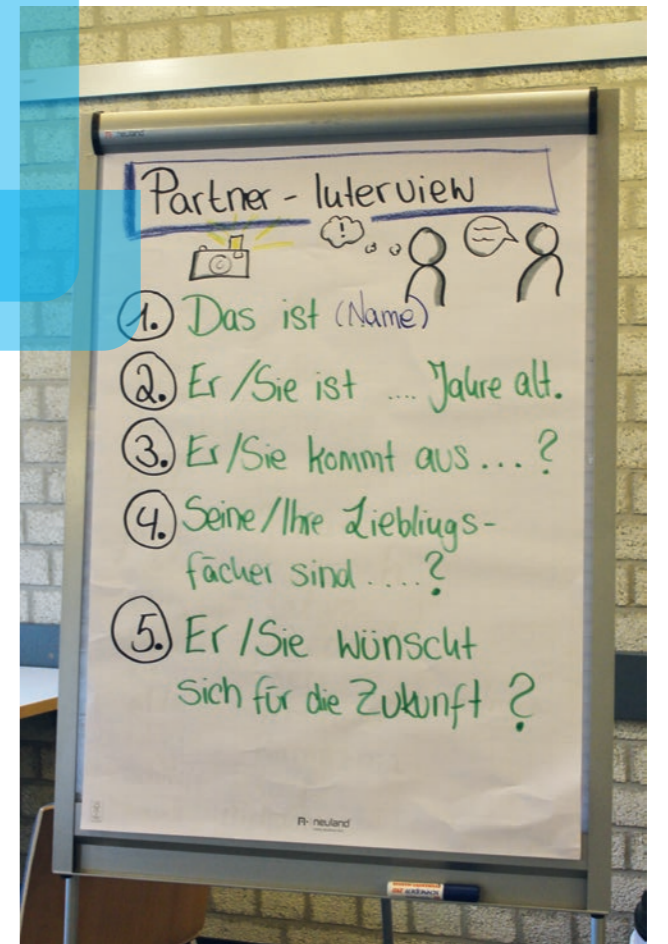 neuland
Partner - Interview
!
1. Das ist (Name)
2. Er/Sie ist .... Jahre alt.
3. Er/Sie kommt aus ... ?
4. Seine/Ihre Lieblings-
fächer sind .... ?
5. Er/Sie wünscht
sich für die Zukunft ?
neuland